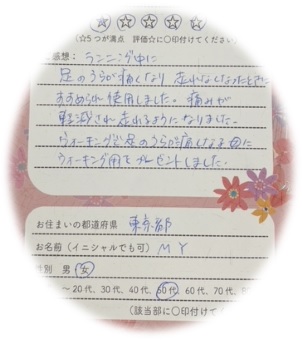 ☆☆☆☆☆
(☆5つが満点 評価☆に〇印付けてください)
感想：ランニング中に
足のうらが痛くなり 走れなくなったときに
すすめられ使用しました。痛みが
軽減され走れるようになりました。
ウォーキングで足のうらが痛けなる母に
ウォーキング用をプレゼントしました。
お住まいの都道府県 東京都
お名前（イニシャルでも可） M Y
性別 男 女
〜20代、30代、40代、50代 60代、70代、8
(該当部に〇印付けて